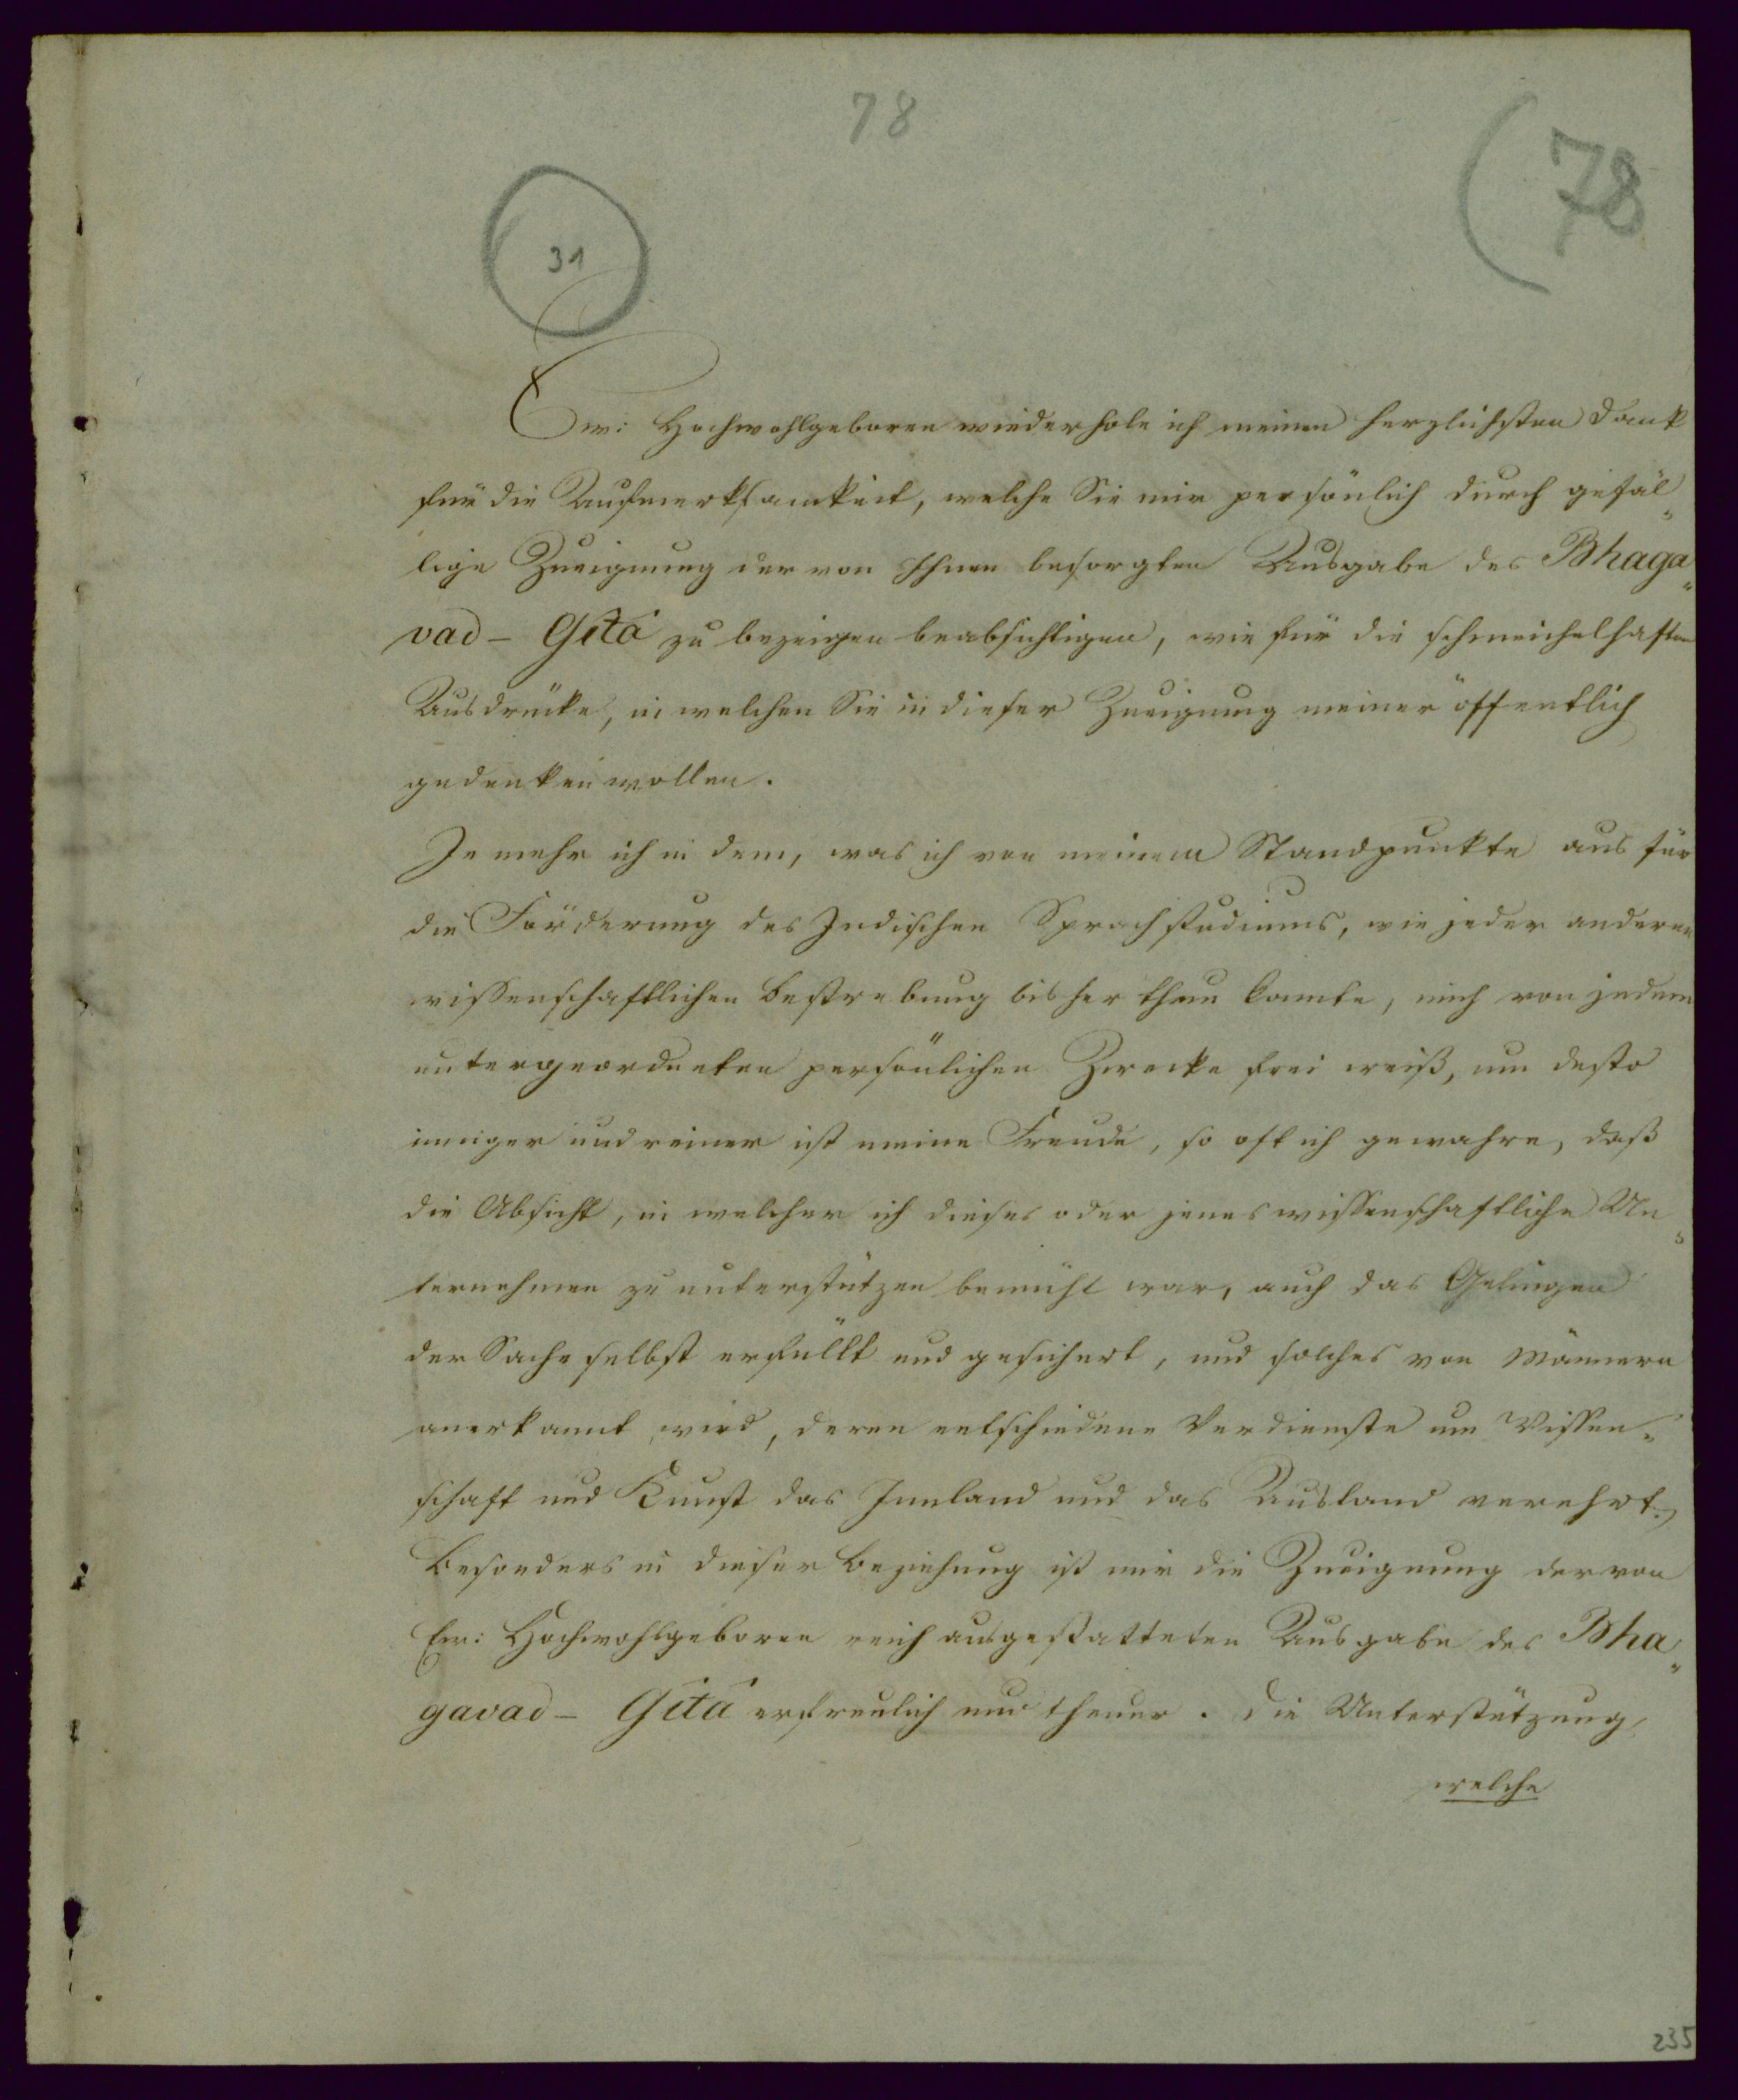 78
(78
31
Ew: Hochwohlgeboren wiederhole ich meinen herzlichsten Dank
für die Aufmerksamkeit, welche Sie mir persönlich durch gefäl„
lige Zueignung der von Ihnen besorgten Ausgabe des Bhaga„
vad– Gítá zu bezeigen beabsichtigen, wie für die schmeichelhaften
Ausdrücke, in welchen Sie in dieser Zueignung meiner öffentlich
gedenken wollen.
Je mehr ich in dem, was ich von meinem Standpunkte aus für
die Förderung des Indischen Sprachstudiums, wie jeder anderen
wissenschaftlichen Bestrebung bisher thun konnte, mich von jedem
untergeordneten persönlichen Zwecke frei weiß, um desto
inniger und reiner ist meine Freude, so oft ich gewahre, daß
die Absicht, in welcher ich dieses oder jenes wissenschaftliche Un„
ternehmen zu unterstützen bemüht war, auch das Gelingen
der Sache selbst erfüllt und gesichert, und solches von Männern
anerkannt wird, deren entschiedene Verdienste um Wissen„
schaft und Kunst das Innland und das Ausland verehrt.
Besonders in dieser Beziehung ist mir die Zueignung der von
Ew: Hochwohlgeboren reich ausgestatteten Ausgabe des Bha„
gavad– Gítá erfreulich und theuer. Die Unterstützung,
welche
235